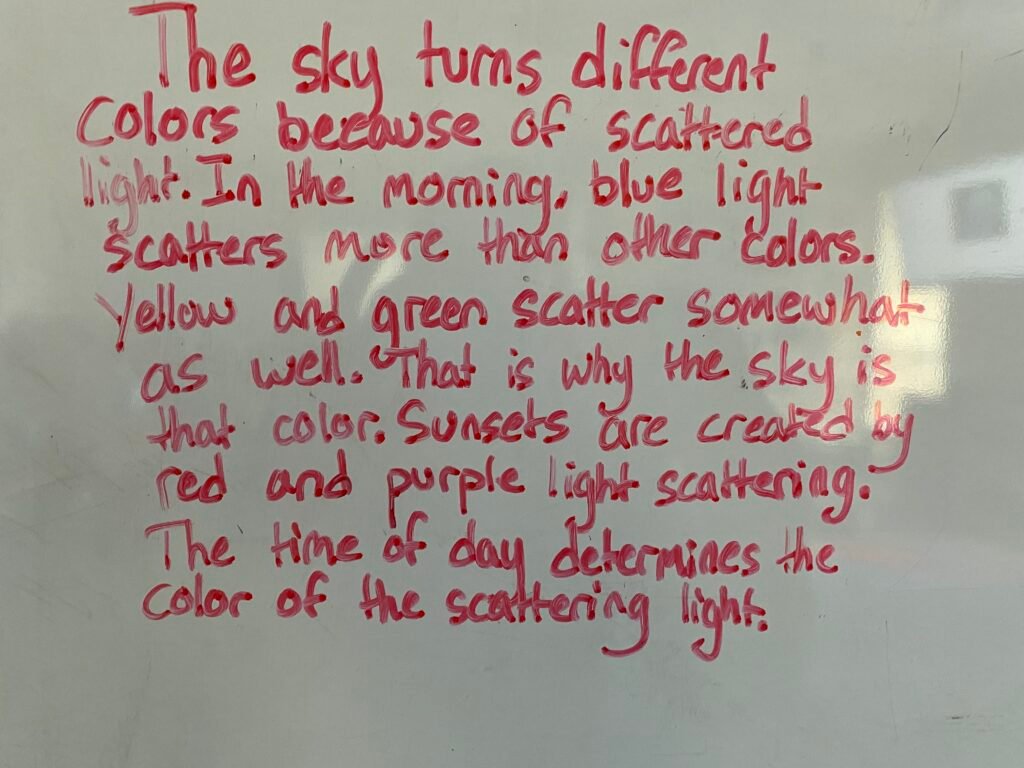 The sky turns different
colors because of scattered
light. In the morning, blue light
scatters more than other colors.
Yellow and green scatter somewhat
as well. That is why the sky is
that color. Sunsets are created by
red and purple light scattering.
The time of day determines the
color of the scattering light.